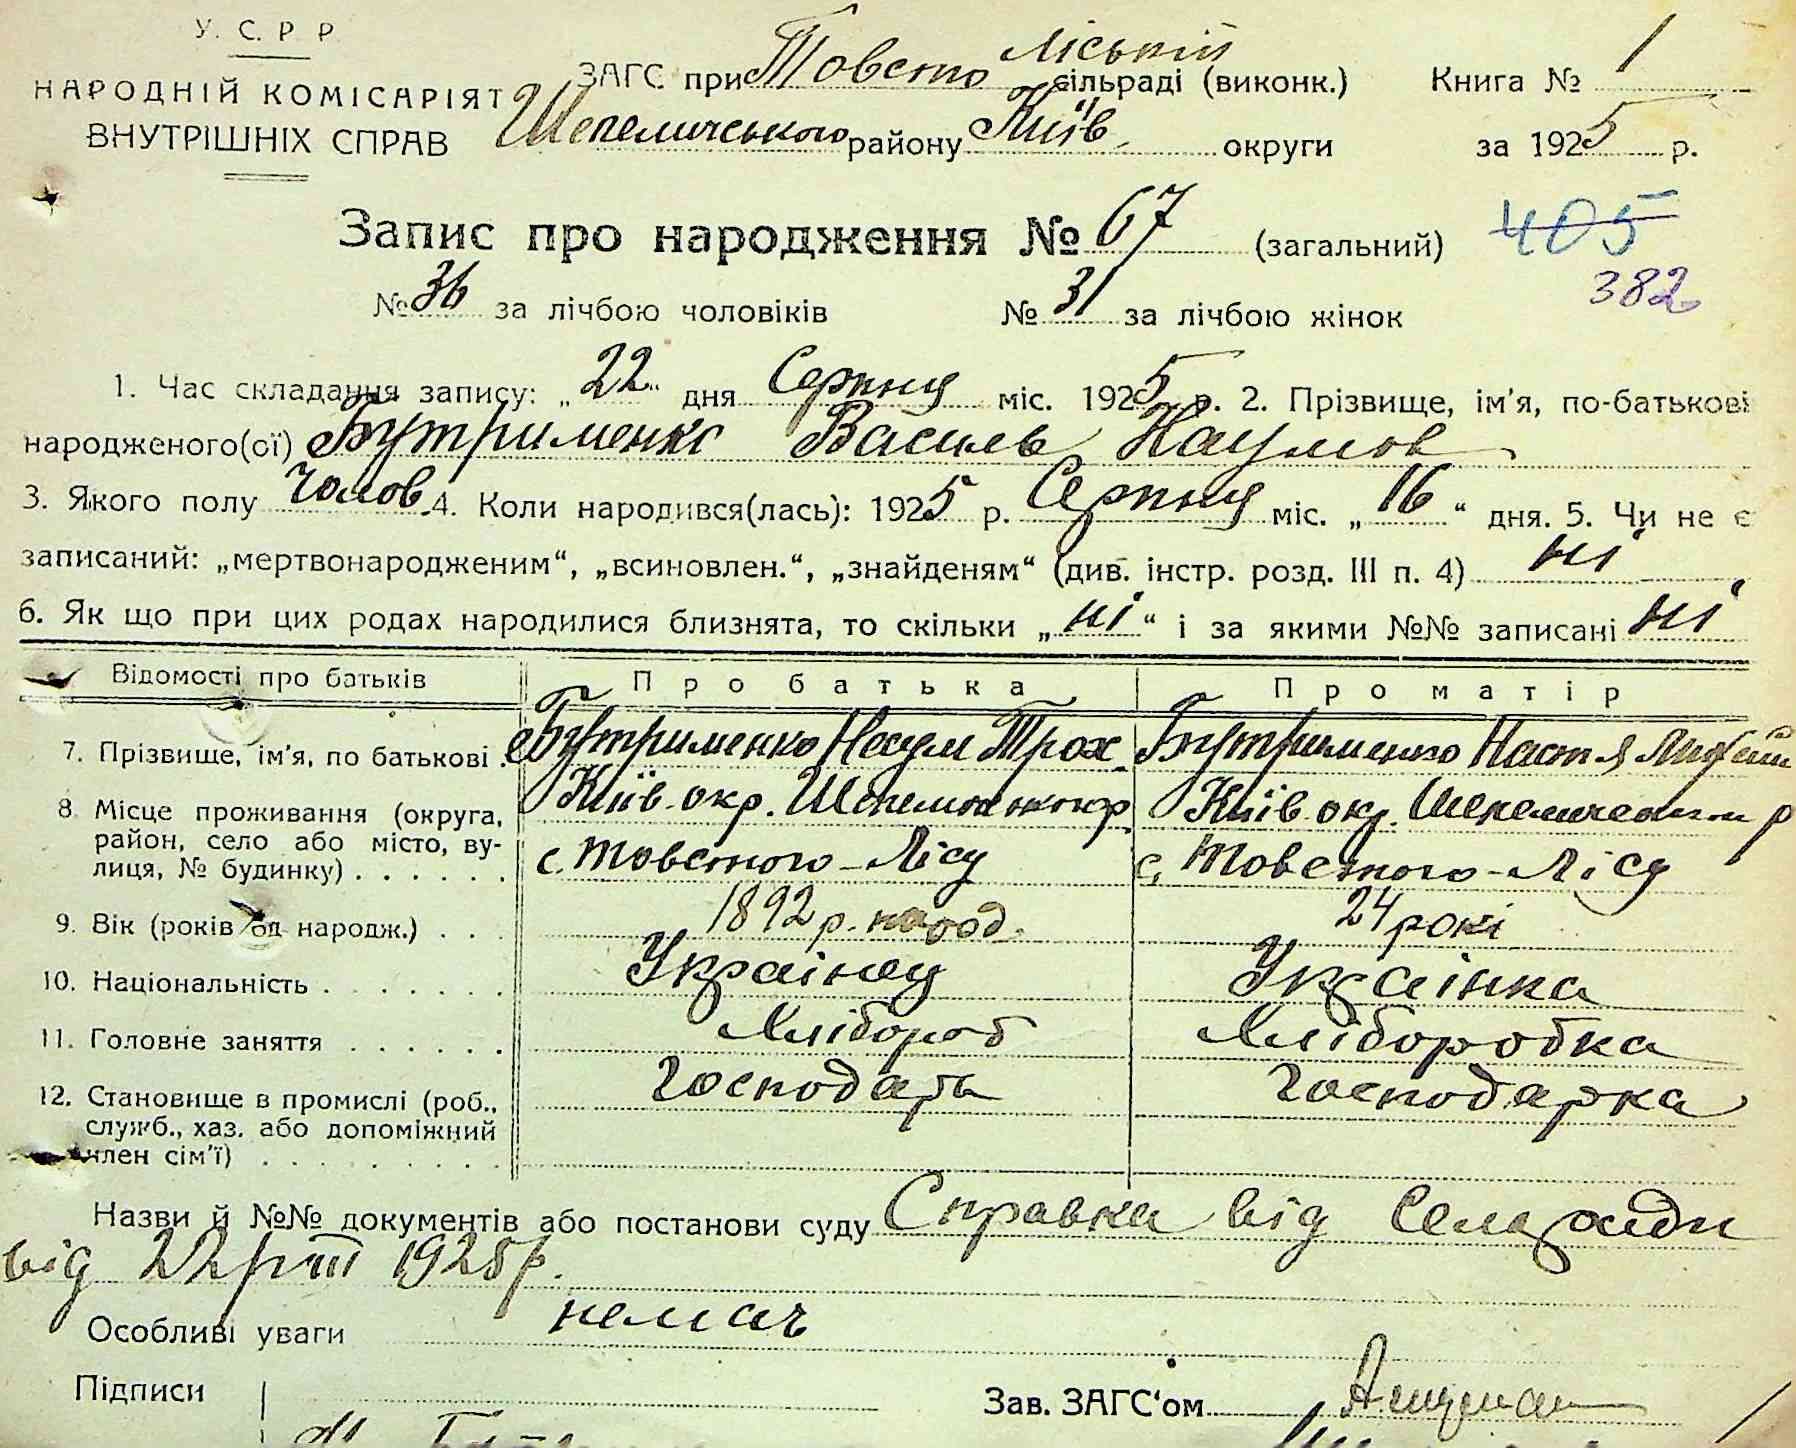 У. С. Р. Р.
НАРОДНІЙ КОМІСАРІЯТ
ВНУТРІШНІХ СПРАВ
ЗАГС при Товсто ліській сільраді (виконк.) Книга № 1
Шепеличського району Київ. округи за 1925 р.
Запис про народження № 67 (загальний) 405
382
№ 36 за лічбою чоловіків № 31 за лічбою жінок
1. Час складання запису: „22“ дня Серпня міс. 1925 р. 2. Прізвище, ім’я, по-батькові
народженого(ої) Бутрименко Василь Наумов
3. Якого полу чолов. 4. Коли народився(лась): 1925 р. Серпня міс. „16“ дня. 5. Чи не є
записаний: „мертвонародженим“, „всиновлен.“, „знайденям“ (див. інстр. розд. III п. 4) ні
6. Як що при цих родах народилися близнята, то скільки „ні“ і за якими №№ записані ні
Відомості про батьків Про батька Про матір
7. Прізвище, ім’я, по батькові . Бутрименко Наум Трох. Бутрименко Настя
8. Місце проживання (округа, Київ. окр. Київ. окр.
район, село або місто, ву- с. Товстого-Лісу с. Товстого-Лісу
лиця, № будинку) . . . . . .
9. Вік (років од народж.) . . . 1892 р. народ. 24 рокі
10. Національність . . . . . . . Українец Українка
11. Головне заняття . . . . . . Хлібороб Хлiборобка
12. Становище в промислі (роб., Господарь Господарка
служб., хаз. або допоміжний
член сім’ї) . . . . . . . . .
Назви й №№ документів або постанови суду Справка від Сельради
від 22/VIII 1925 р.
Особливі уваги немає
Підписи Зав. ЗАГС‘ом